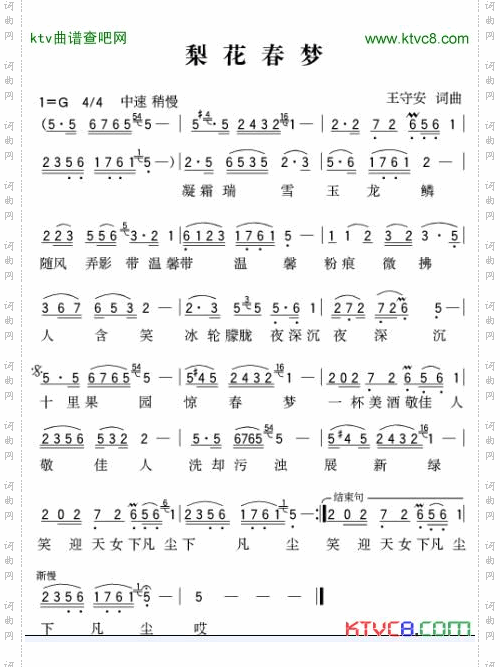 ktv曲谱查吧网
www.ktvc8.com
梨花春梦
1=G 4/4 中速 稍慢
王守安 词曲
(5·5 6765 54 5 — | 5·#4 5 2432 16 1 — | 2·2 7 2 6 5 6 1 |
2356 1761 1 5 — ) | 2·5 6535 2·3 | 5·6 1761 2 — |
凝霜瑞 雪 玉 龙 鳞
2 2 3 5 5 6 5 3·2 1 | 6123 1761 5 — | 1 1 2 3 2 3·5 |
随风 弄影 带温馨带 温 馨 粉痕 微 拂
3 6 7 6 5 3 2 — | 2·2 5 3 5 5·6 1 | 2 7 2 7 2 7 6 5 — |
人 含 笑 冰轮朦胧 夜深沉 夜 深 沉
5·5 6765 54 5 — | 5#45 2432 16 1 — | 2 0 2 7 2 6 5 6 1 |
十里果 园 惊 春 梦 一杯美酒敬佳人
2356 5 3 2 2 — | 5·5 6765 54 5 — | 5#45 2432 16 1 — |
敬 佳 人 洗却污 浊 展 新 绿
结束句
2 0 2 7 2 6 5 6 1 6 | 2356 1761 1 5 — :‖ 2 0 2 7 2 6 5 6 1 |
笑 迎 天女下凡尘 下 凡 尘 笑 迎 天女下凡尘
渐慢
2356 1761 1 5 — | 5 — — — ‖
下 凡 尘 哎
KTVC8.COM
词曲网